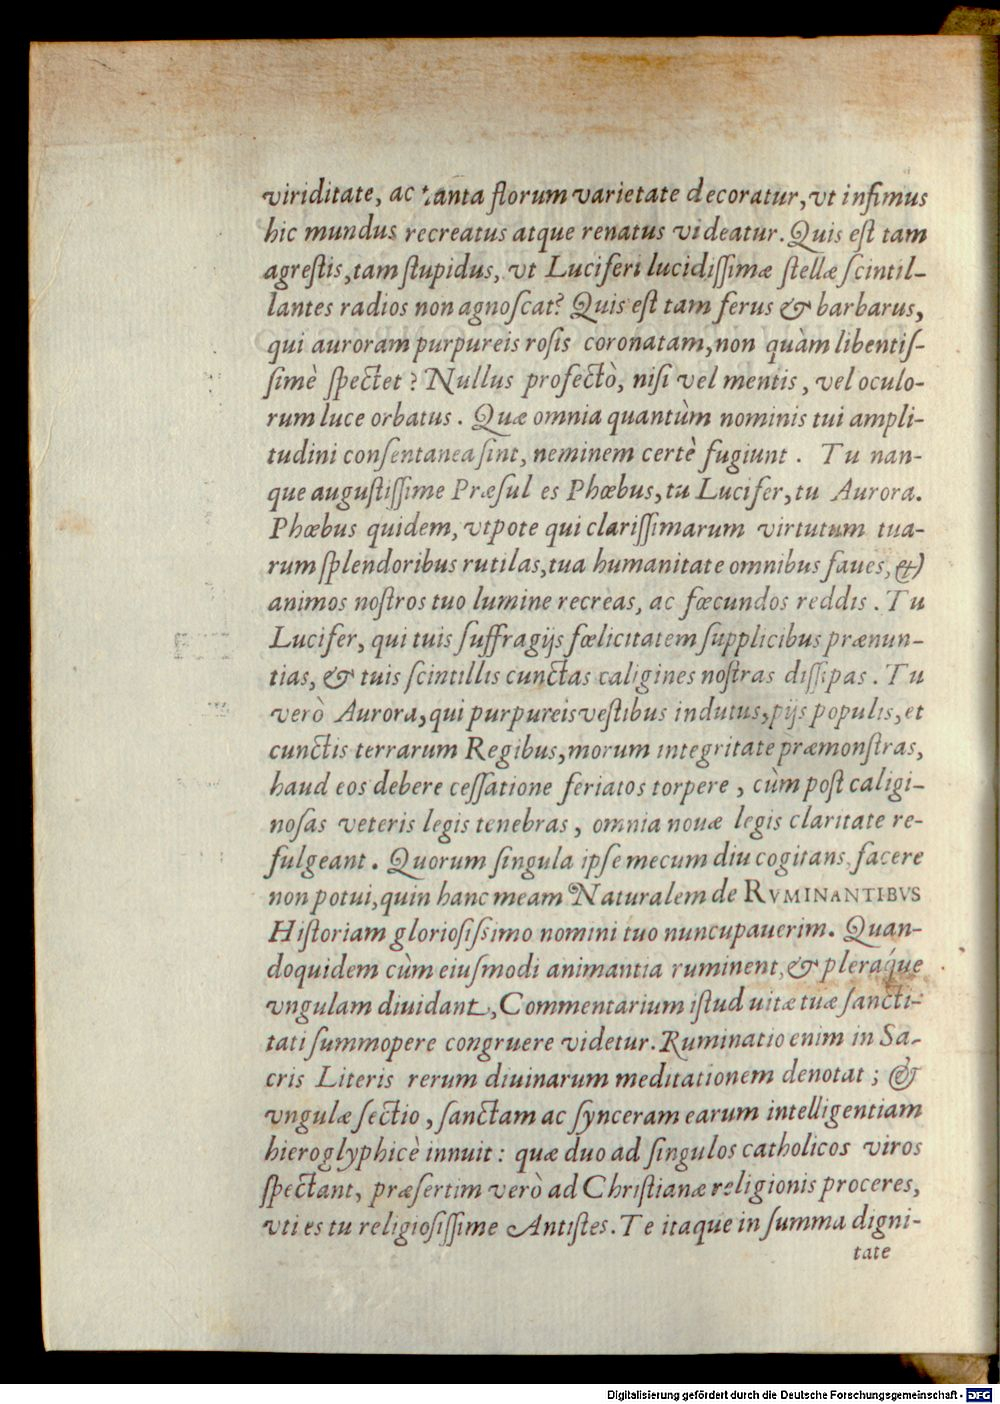 viriditate, ac tanta florum varietate decoratur, vt infimus
hic mundus recreatus atque renatus videatur. Quis eſt tam
agreſtis, tam ſtupidus, vt Luciferi lucidiſſimæ ſtellæ ſcintil-
lantes radios non agnoſcat? Quis eſt tam ferus & barbarus,
qui auroram purpureis roſis coronatam, non quàm libentiſ-
ſimè ſpectet? Nullus profectò, niſi vel mentis, vel oculo-
rum luce orbatus. Quæ omnia quantùm nominis tui ampli-
tudini conſentanea ſint, neminem certè fugiunt. Tu nan-
que auguſtiſſime Præſul es Phœbus, tu Lucifer, tu Aurora.
Phœbus quidem, vtpote qui clariſſimarum virtutum tua-
rum ſplendoribus rutilas, tua humanitate omnibus faues, &
animos noſtros tuo lumine recreas, ac fœcundos reddis. Tu
Lucifer, qui tuis ſuffragijs fœlicitatem ſupplicibus prænun-
tias, & tuis ſcintillis cunctas caligines noſtras diſſipas. Tu
verò Aurora, qui purpureis veſtibus indutus, pijs populis, et
cunctis terrarum Regibus, morum integritate præmonſtras,
haud eos debere ceſſatione feriatos torpere, cùm poſt caligi-
noſas veteris legis tenebras, omnia nouæ legis claritate re-
fulgeant. Quorum ſingula ipſe mecum diu cogitans, facere
non potui, quin hanc meam Naturalem de RVMINANTIBVS
Hiſtoriam glorioſiſsimo nomini tuo nuncupauerim. Quan-
doquidem cùm eiuſmodi animantia ruminent, & pleráque
vngulam diuidant, Commentarium iſtud uitæ tuæ ſancti-
tati ſummopere congruere videtur. Ruminatio enim in Sa-
cris Literis rerum diuinarum meditationem denotat; &
vngulæ ſectio, ſanctam ac ſynceram earum intelligentiam
hieroglyphicè innuit: quæ duo ad ſingulos catholicos viros
ſpectant, præſertim verò ad Chriſtianæ religionis proceres,
vti es tu religioſiſſime Antiſtes. Te itaque in ſumma digni-
tate
Digitalisierung gefördert durch die Deutsche Forschungsgemeinschaft - DFG